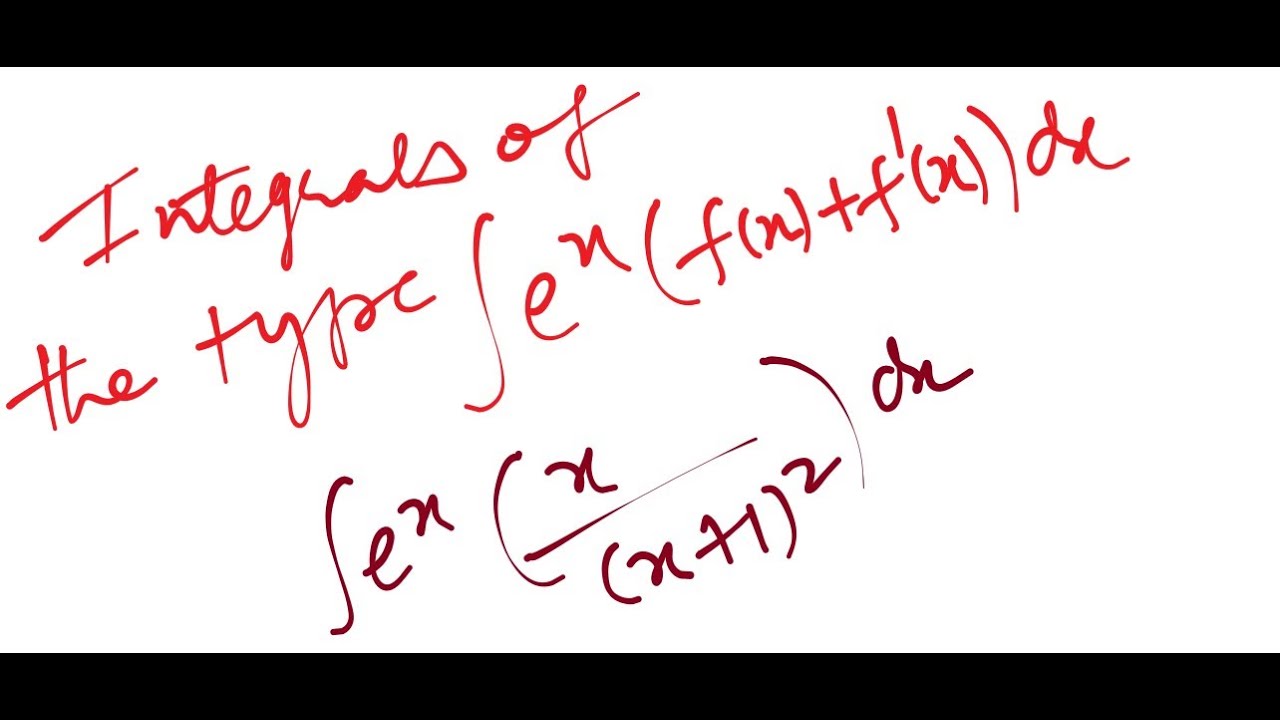 Integrals of
the type ∫eˣ(f(x)+f'(x))dx
∫eˣ(x/(x+1)²)dx